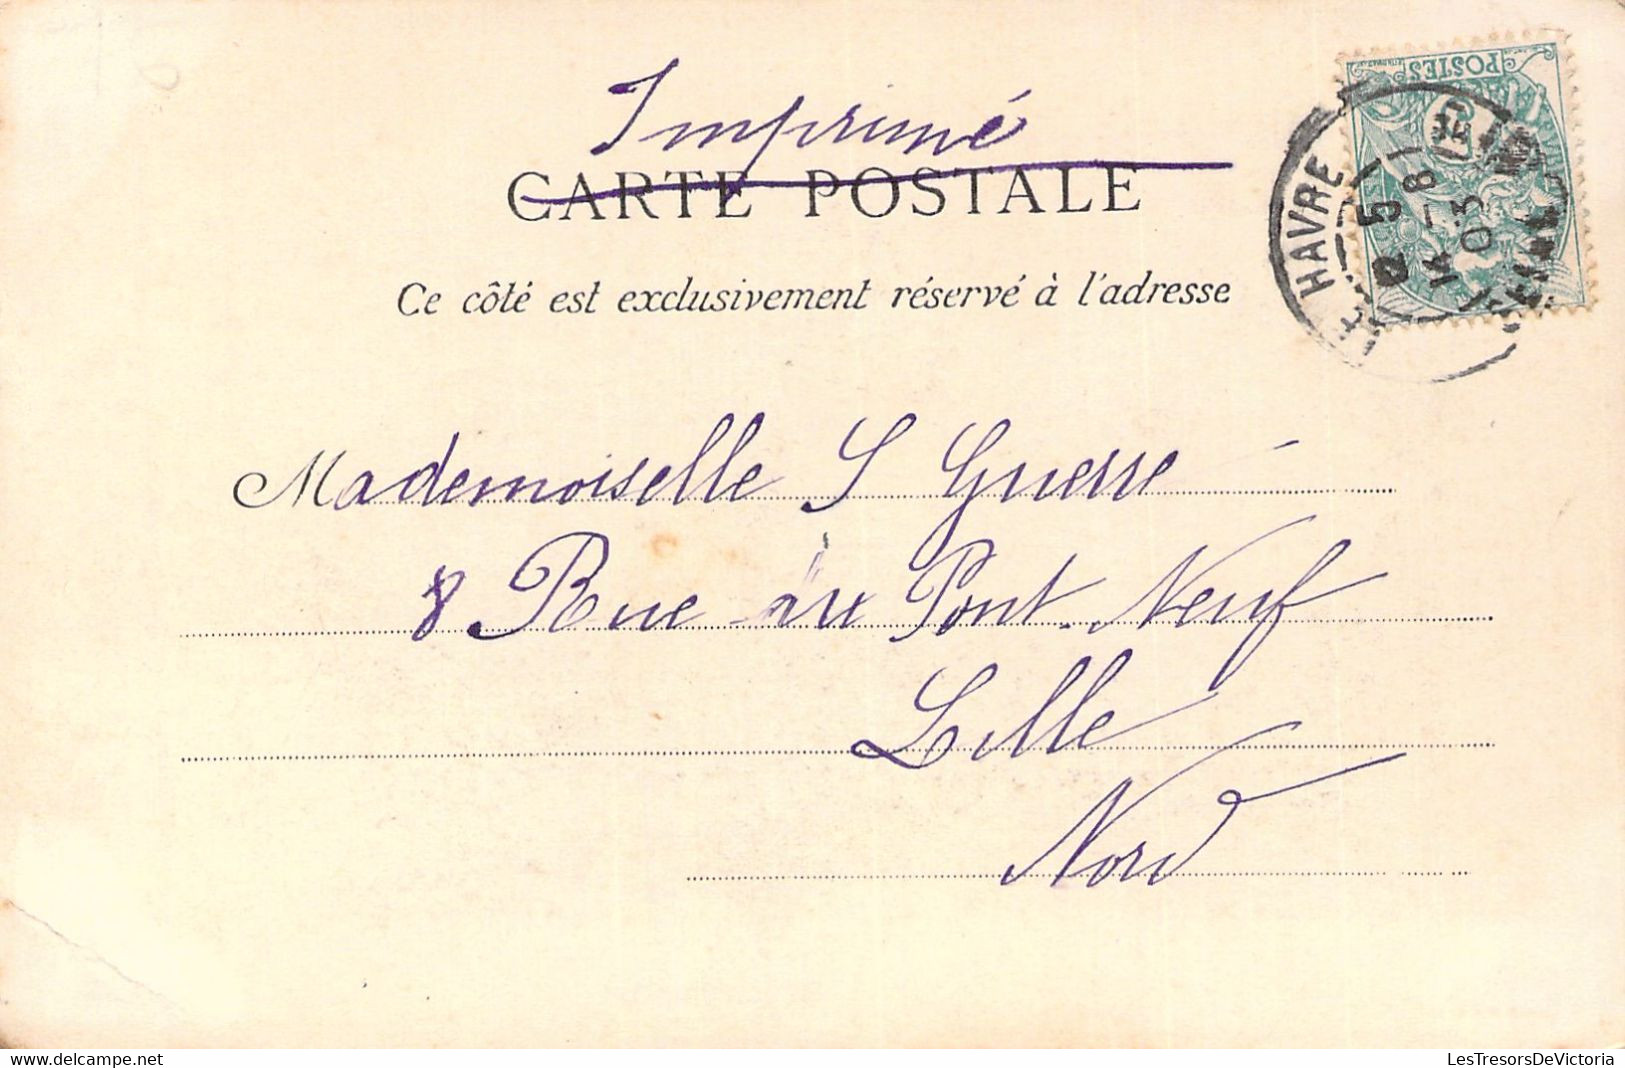 Imprimé
CARTE POSTALE
Ce côté est exclusivement réservé à l'adresse
POSTES
LE HAVRE
5
14 - 8
03
Mademoiselle S Guerre
8 Rue du Pont-Neuf
Lille
Nord
delcampe.net
LesTresorsDeVictoria